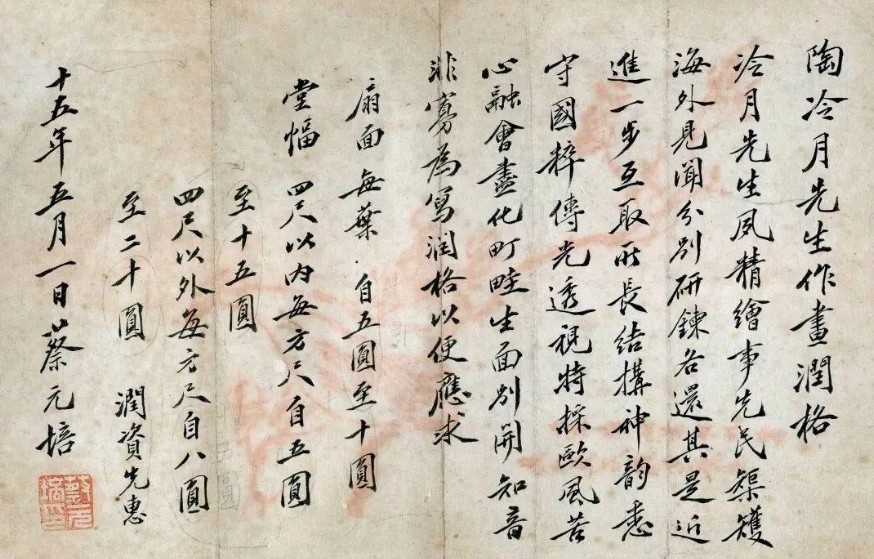 陶冷月先生作畫潤格
冷月先生夙精繪事先民榘矱
海外見聞分別研鍊各還其是近
進一步互取所長結搆神韵悉
守國粹傳光透視特採歐風苦
心融會盡化町畦生面別開知音
非寡為寫潤格以便應求
扇面每葉自五圓至十圓
堂幅四尺以內每方尺自五圓
至十五圓
四尺以外每方尺自八圓
至二十圓 潤資先惠
十五年五月一日蔡元培
蔡元培印